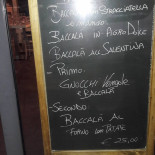 BACCALÀ STRACCIATELLA
BACCALÀ IN AGRO DOLCE
BACCALÀ ALLA SALENTINA
- PRIMO:
GNOCCHI VONGOLE
E BACCALÀ
- SECONDO:
BACCALÀ AL
FORNO CON PATATE
€ 25,00